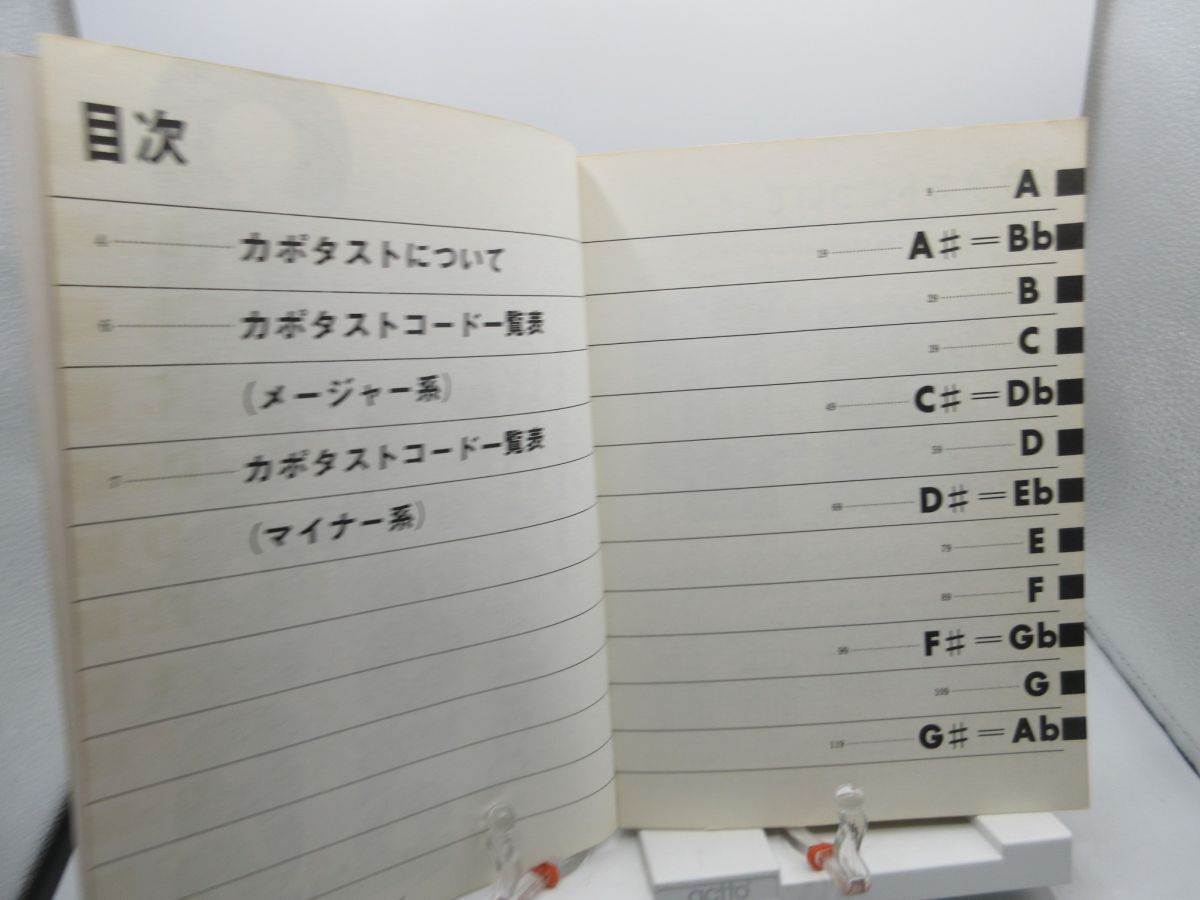 目次
カポタストについて
カポタストコード一覧表
(メージャー系)
カポタストコード一覧表
(マイナー系)
9 A
19 A♯=Bb
29 B
39 C
49 C♯=Db
59 D
69 D♯=Eb
79 E
89 F
99 F♯=Gb
109 G
119 G♯=Ab
actto